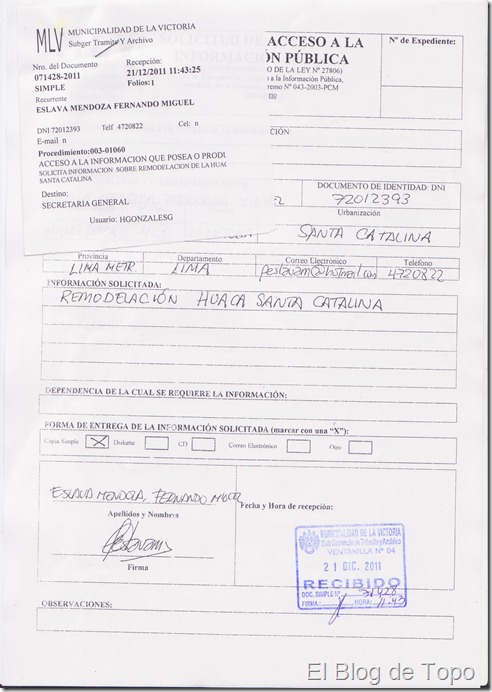 MLV
MUNICIPALIDAD DE LA VICTORIA
Subger Tramite Y Archivo
Nro. del Documento
071428-2011
SIMPLE
Recepción:
21/12/2011 11:43:25
Folios:1
Recurrente
ESLAVA MENDOZA FERNANDO MIGUEL
DNI 72012393 Telf 4720822 Cel: n
E-mail n
Procedimiento:003-01060
ACCESO A LA INFORMACION QUE POSEA O PRODU
SOLICITA INFORMACION SOBRE REMODELACION DE LA HUA
SANTA CATALINA
Destino:
SECRETARIA GENERAL
Usuario: HGONZALESG
SOLICITUD DE ACCESO A LA
INFORMACIÓN PÚBLICA
O DE LA LEY Nº 27806)
o a la Información Pública,
remo Nº 043-2003-PCM
Nº de Expediente:
CIÓN:
DOCUMENTO DE IDENTIDAD: DNI
72012393
Urbanización
SANTA CATALINA
Provincia Departamento Correo Electrónico Teléfono
LIMA METR. LIMA 4720822
INFORMACIÓN SOLICITADA:
REMODELACIÓN HUACA SANTA CATALINA
DEPENDENCIA DE LA CUAL SE REQUIERE LA INFORMACIÓN:
FORMA DE ENTREGA DE LA INFORMACIÓN SOLICITADA (marcar con una "X"):
Copia Simple X Diskette CD Correo Electrónico Otro
ESLAVA MENDOZA, FERNANDO
Apellidos y Nombres
Firma
Fecha y Hora de recepción:
MUNICIPALIDAD DE LA VICTORIA
Sub Gerencia de Trámite y Archivo
VENTANILLA Nº 04
21 DIC. 2011
RECIBIDO
DOC. SIMPLE Nº 71428
FIRMA: HORA: 11:43
OBSERVACIONES:
El Blog de Topo